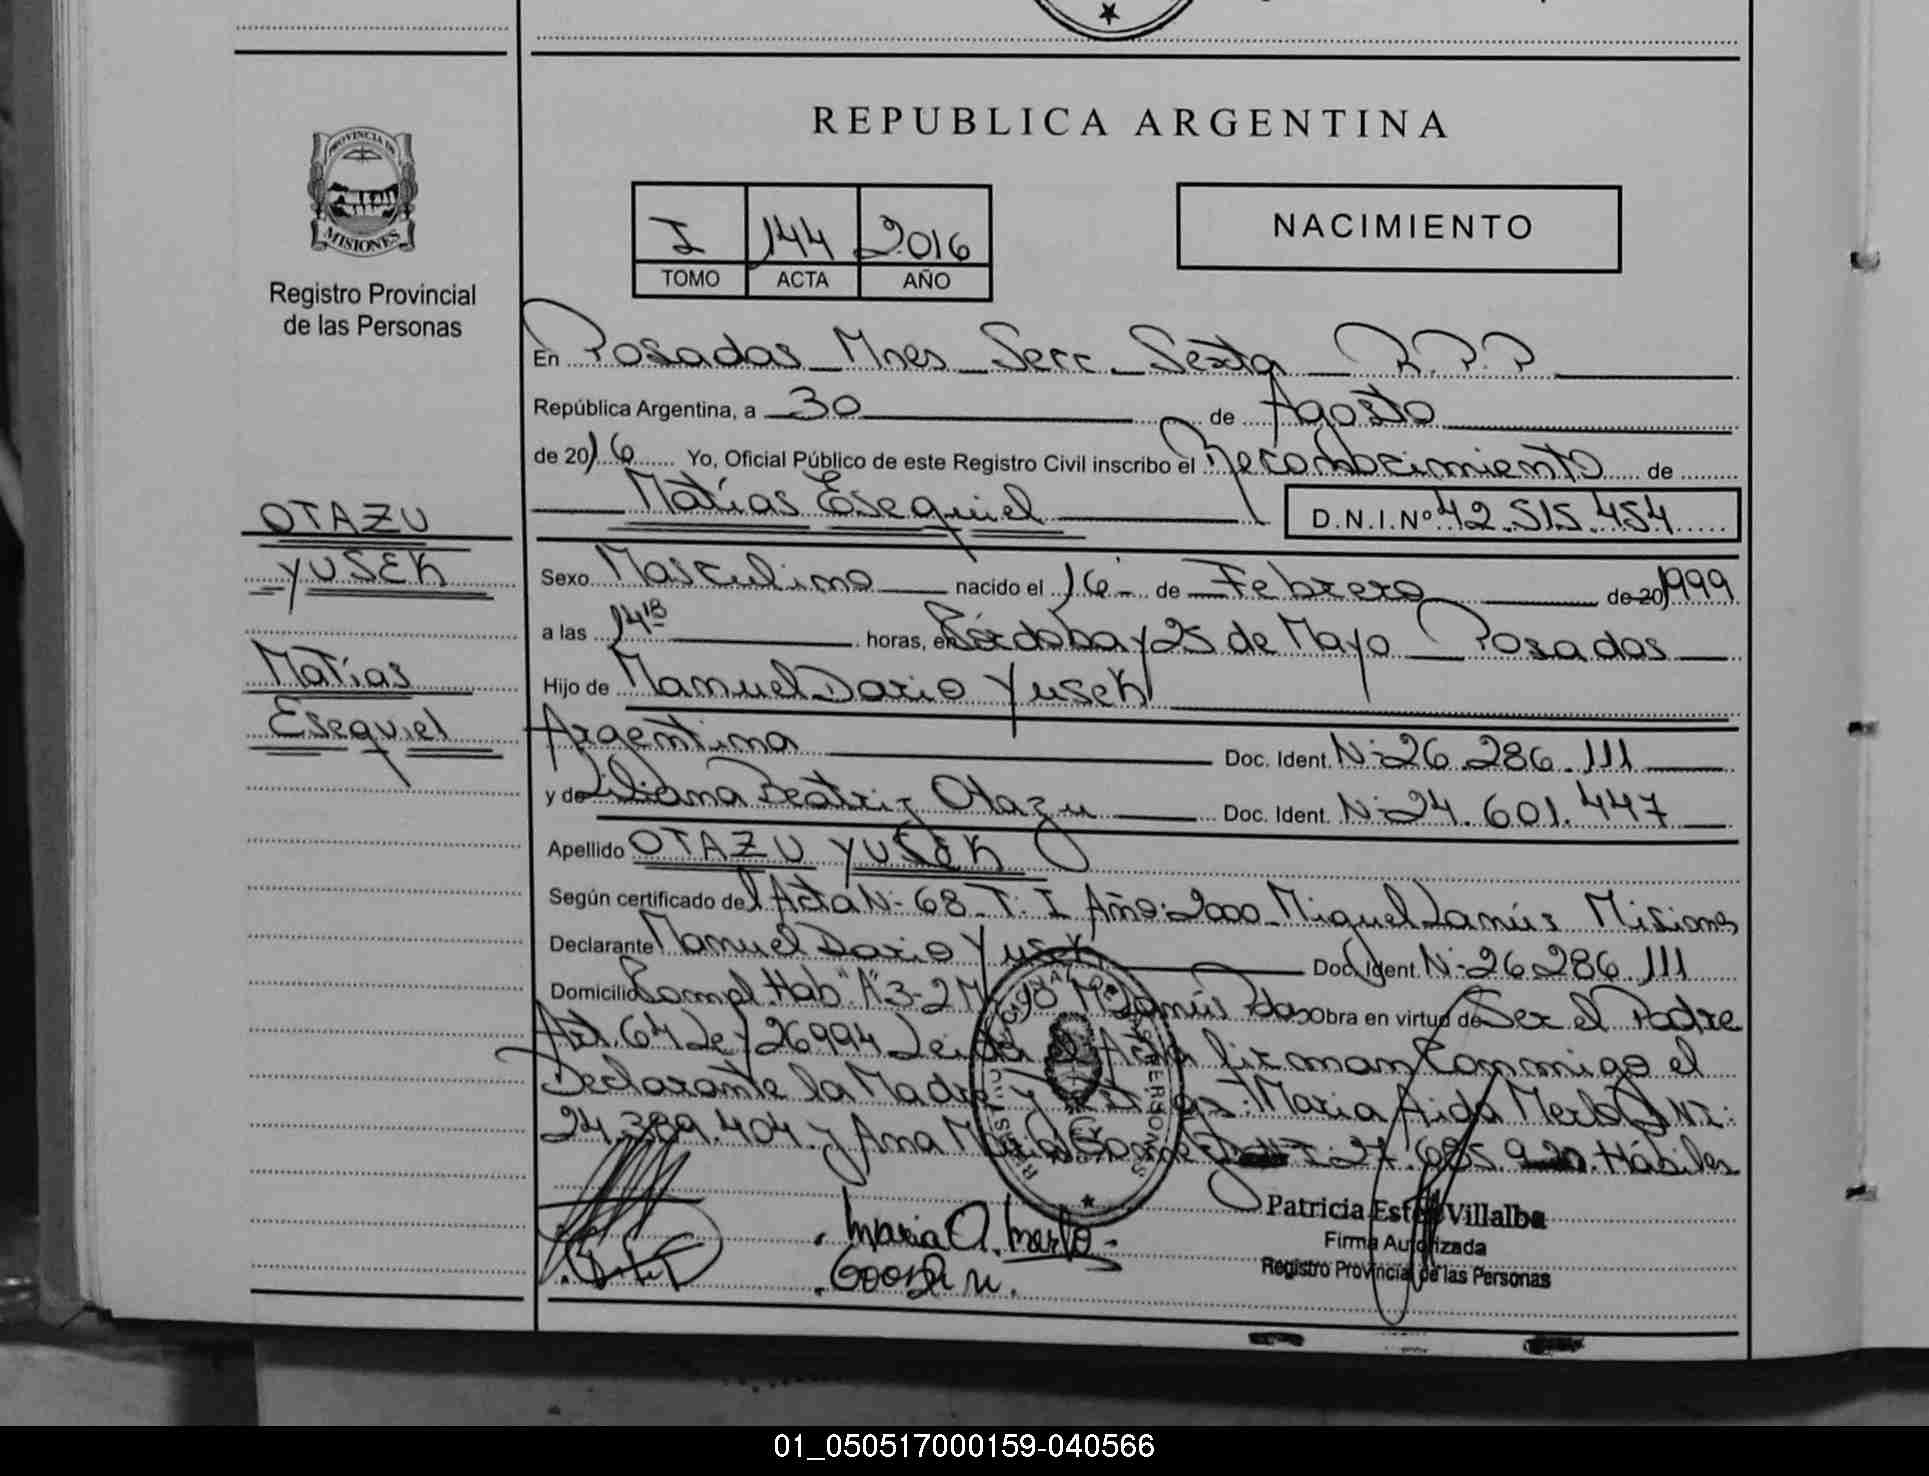 REPUBLICA ARGENTINA
PROVINCIA DE
MISIONES
Registro Provincial
de las Personas
I 144 2016
TOMO ACTA AÑO
NACIMIENTO
En Posadas Mnes Secc. Sexta R.P.P
República Argentina, a 30 de Agosto
de 2016 Yo, Oficial Público de este Registro Civil inscribo el Reconocimiento de
Matías Esequiel D.N.I.Nº 42.515.454
OTAZU
YUSEK
Matías
Esequiel
Sexo Masculino nacido el 16 de Febrero de 20 1999
a las 14 18 horas, en Córdoba y 25 de Mayo Posadas
Hijo de Manuel Dario Yusek
Argentina Doc. Ident. N- 26.286.111
y de Liliana Beatriz Otazu Doc. Ident. N- 24.601.447
Apellido OTAZU YUSEK
Según certificado del Acta N- 68 T. I Año: 2000 Miguel Lanús Misiones
Declarante Manuel Dario Yusek Doc. Ident. N- 26.286.111
Domicilio Compl. Hab "A" 3-2 M. Lanús Pdas Obra en virtud de Ser el Padre
Art. 64 Ley 26994 Leida el Acta firman Conmigo el
Declarante la Madre y Maria Aida Merlo DNI:
24.389.404 y Ana 27.685.920 Hábiles
Maria A. Merlo
Patricia Villalba
Firma Autorizada
Registro Provincial de las Personas
01_050517000159-040566